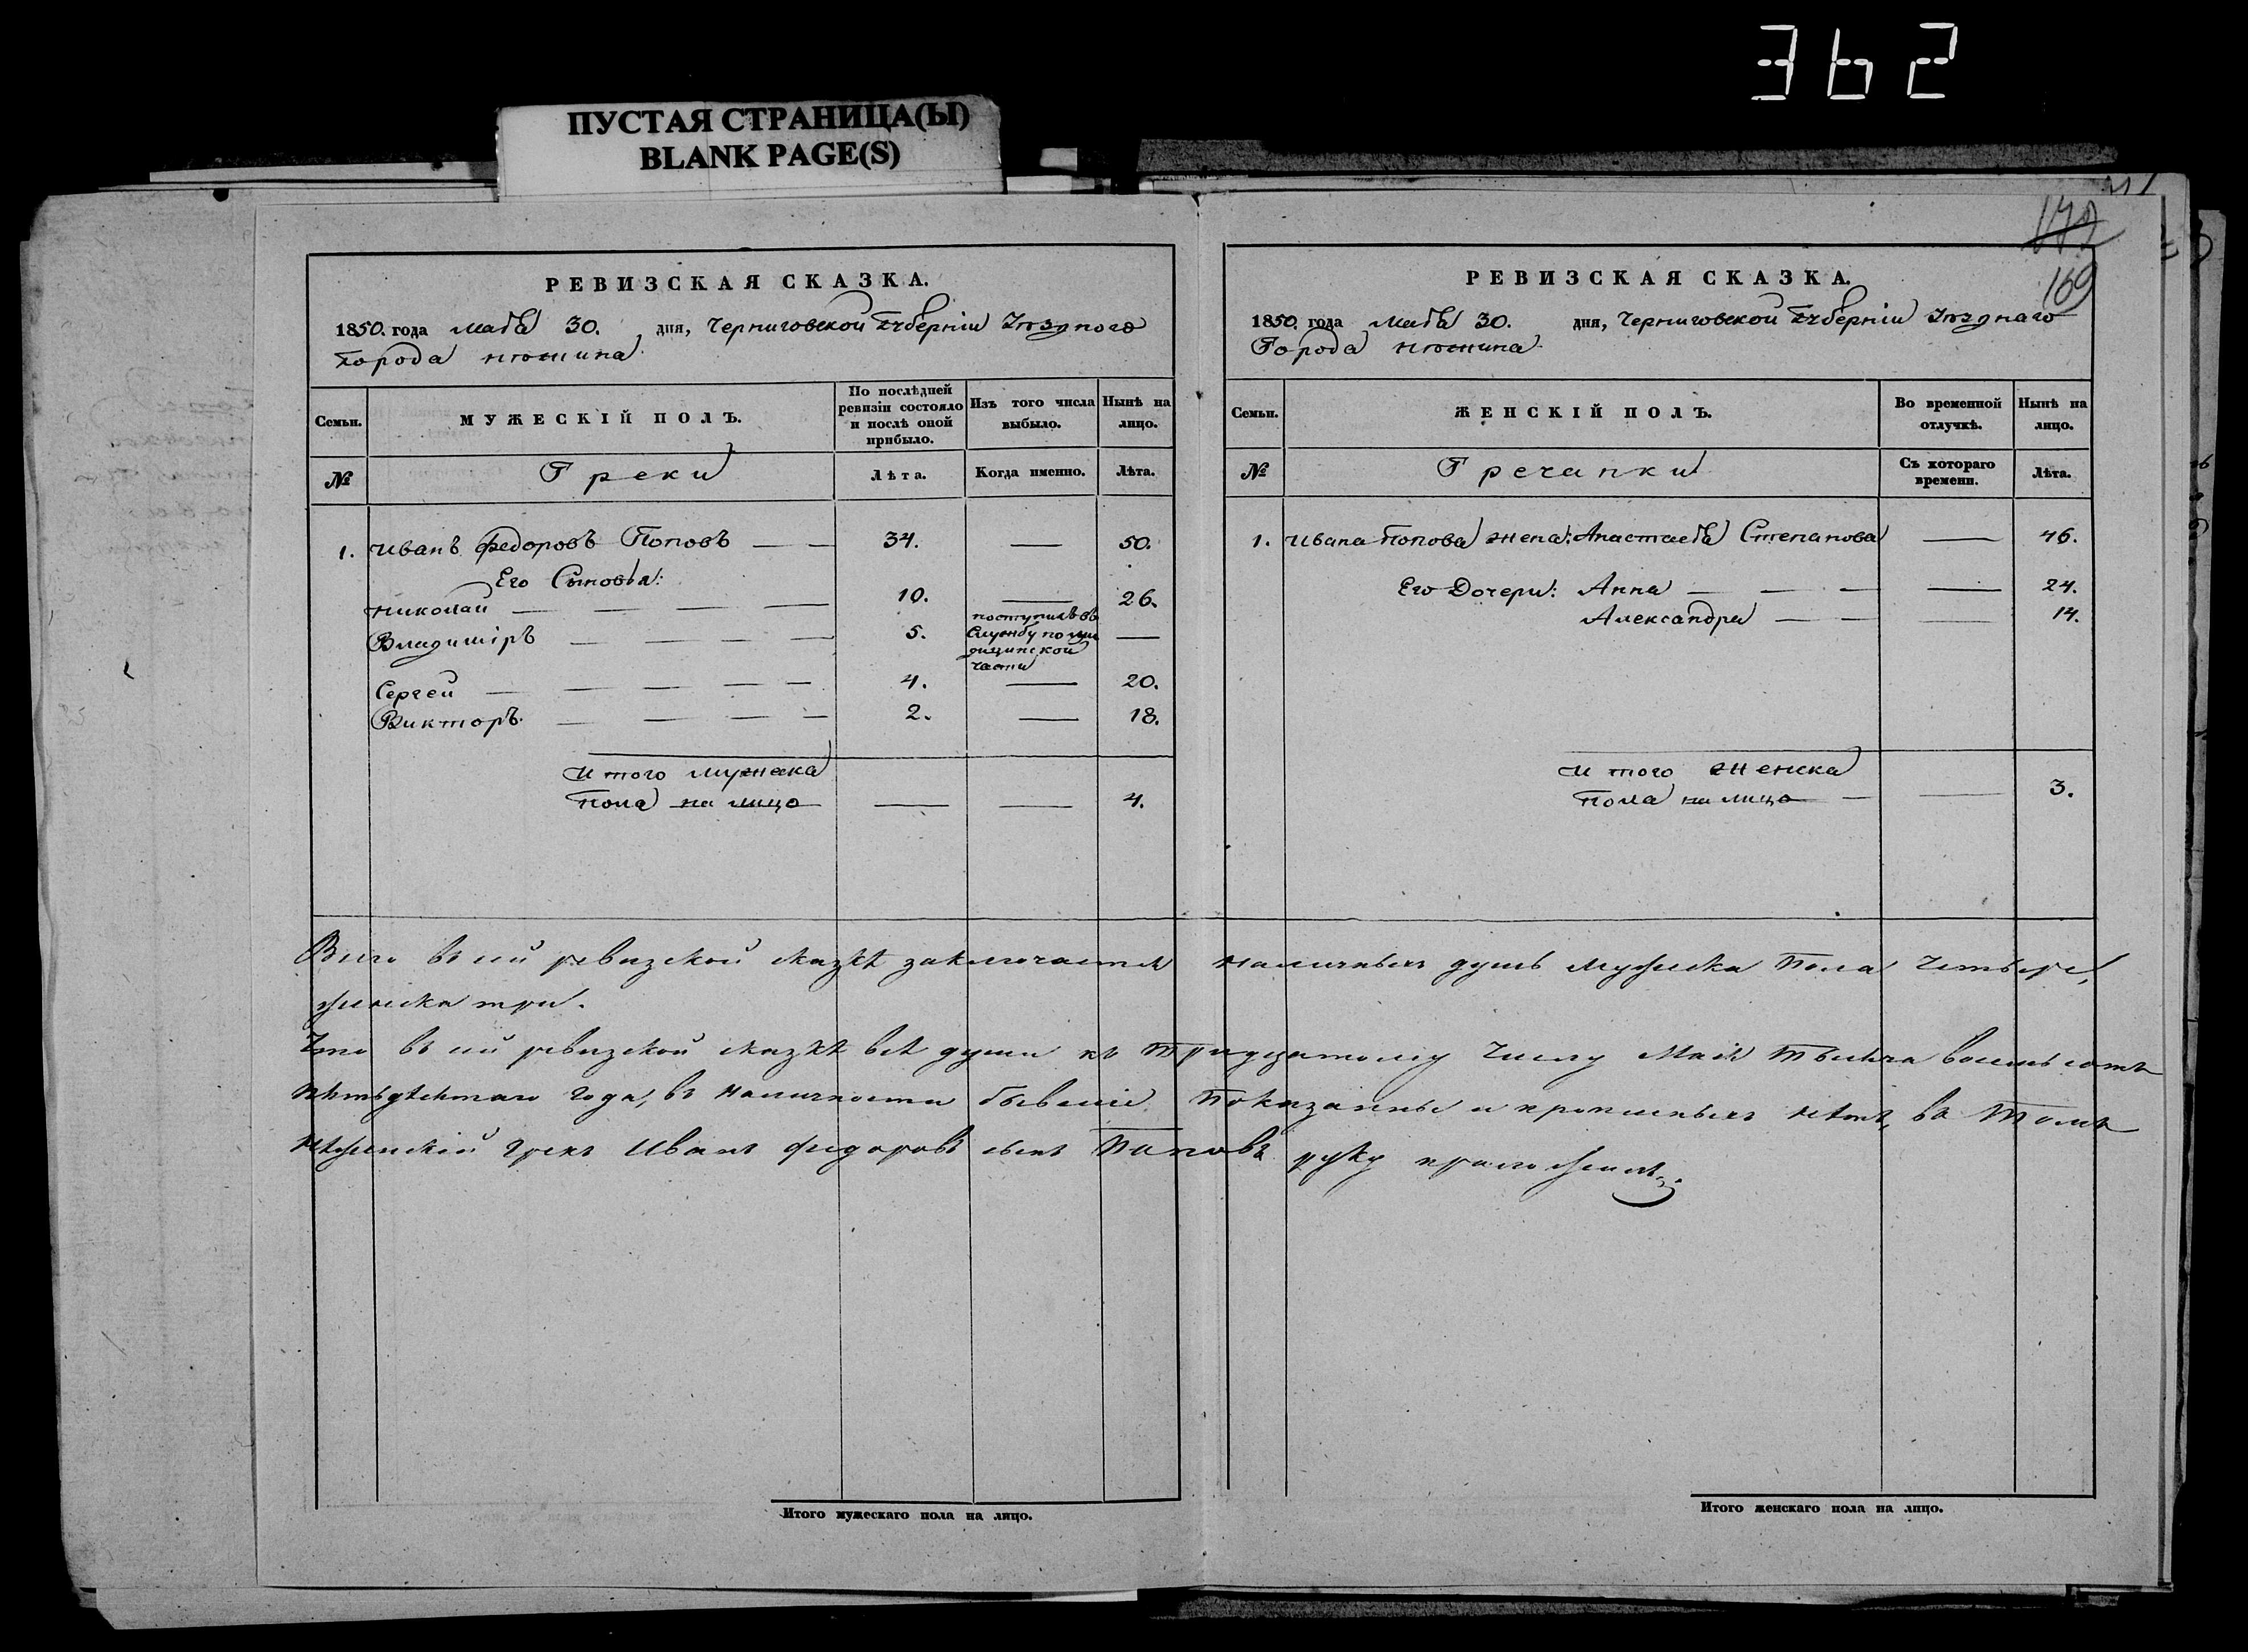 362
ПУСТАЯ СТРАНИЦА(Ы)
BLANK PAGE(S)
172
169
РЕВИЗСКАЯ СКАЗКА.
1850. года Маія 30. дня, Черниговской Губерніи Уѣзднаго
Города Нѣжина
Семьи. МУЖЕСКІЙ ПОЛЪ. По послѣдней ревизіи состояло и послѣ оной прибыло. Изъ того числа выбыло. Нынѣ на лицо.
№ Греки Лѣта. Когда именно. Лѣта.
1. Иванъ Федоровъ Поповъ — — 34. — 50.
Его Сыновья:
Николай — — — — 10. — 26.
Владиміръ — — — 5. поступилъ въ Службу по медицинской части —
Сергей — — — — — 4. — 20.
Викторъ. — — — — 2. — 18.
Итого мужеска
пола на лицо — — 4.
РЕВИЗСКАЯ СКАЗКА.
1850. года Маія 30. дня, Черниговской Губерніи Уѣзднаго
Города Нѣжина
Семьи. ЖЕНСКІЙ ПОЛЪ. Во временной отлучкѣ. Нынѣ на лицо.
№ Гречанки Съ котораго времени. Лѣта.
1. Ивана Попова жена: Анастасія Степанова — 46.
Его Дочери: Анна — — — — 24.
Александра — — — 14.
Итого женска
пола на лицо — — 3.
Всего въ сей ревизской сказкѣ заключается наличныхъ душъ мужеска пола четыре,
женска три.
Что въ сей ревизской сказкѣ всѣ души къ тридцатому числу Маія тысяча восемь сотъ
пятьдесятаго года, въ наличности бывшіе показанны и прописныхъ нѣтъ, въ томъ
нѣжинскій грекъ Иванъ Федоровъ сынъ Поповъ руку приложилъ.
Итого мужескаго пола на лицо.
Итого женскаго пола на лицо.